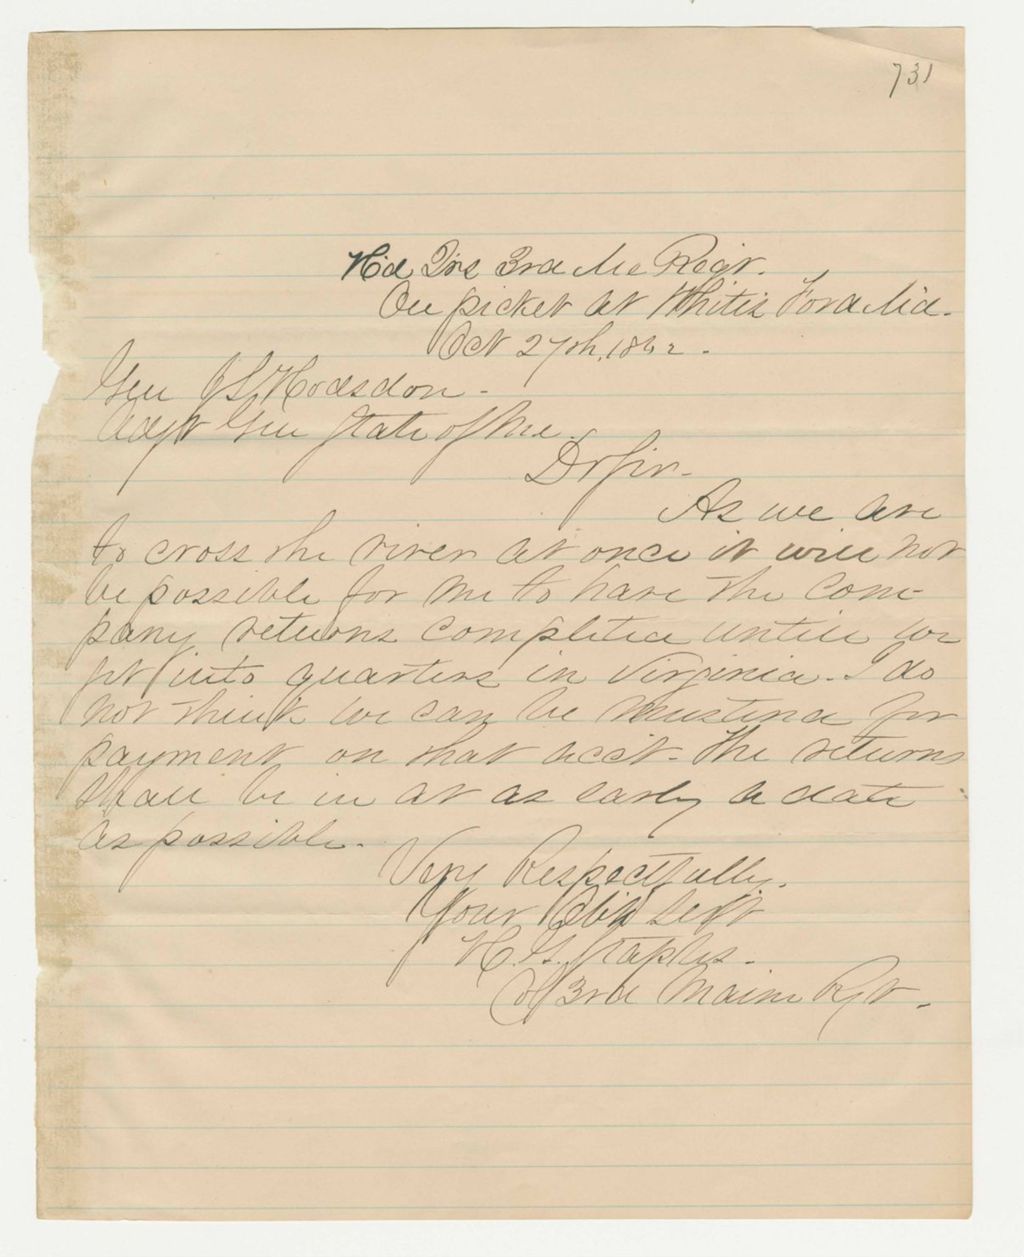 731
Hd Qrs 3rd Me Regt.
On picket at Whites Ford Md.
Oct 27th, 1862.
Gen J L Hodsdon.
Adjt Gen State of Me.
Dr Sir.
As we are
to cross the river at once it will not
be possible for me to have the com-
pany returns completed untill we
get into quarters in Virginia. I do
not think we can be mustered for
payment on that acct. The returns
shall be in at as early a date
as possible.
Very Respectfully.
Your Obt Servt
H. G. Staples.
Col 3rd Maine Regt.